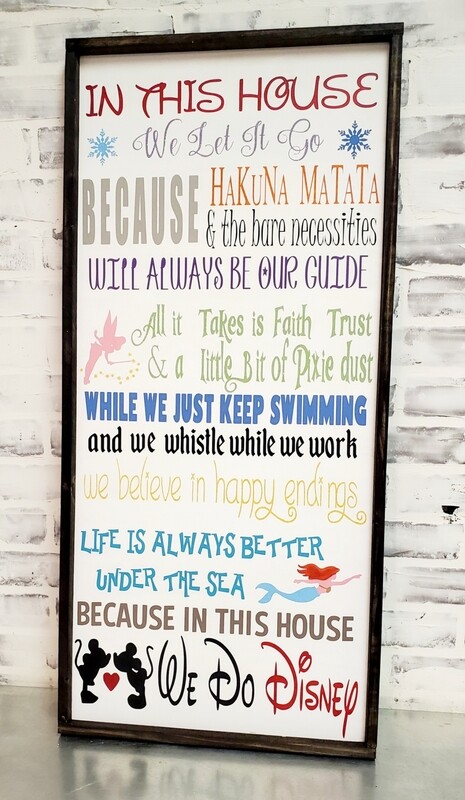 IN THIS HOUSE
We Let It Go
BECAUSE
HaKuNa MaTaTa
& the bare necessities
WILL ALWAYS BE OUR GUIDE
All it Takes is Faith Trust
& a little Bit of Pixie dust
WHILE WE JUST KEEP SWIMMING
and we whistle while we work
we believe in happy endings
LIFE IS ALWAYS BETTER
UNDER THE SEA
BECAUSE IN THIS HOUSE
We Do Disney